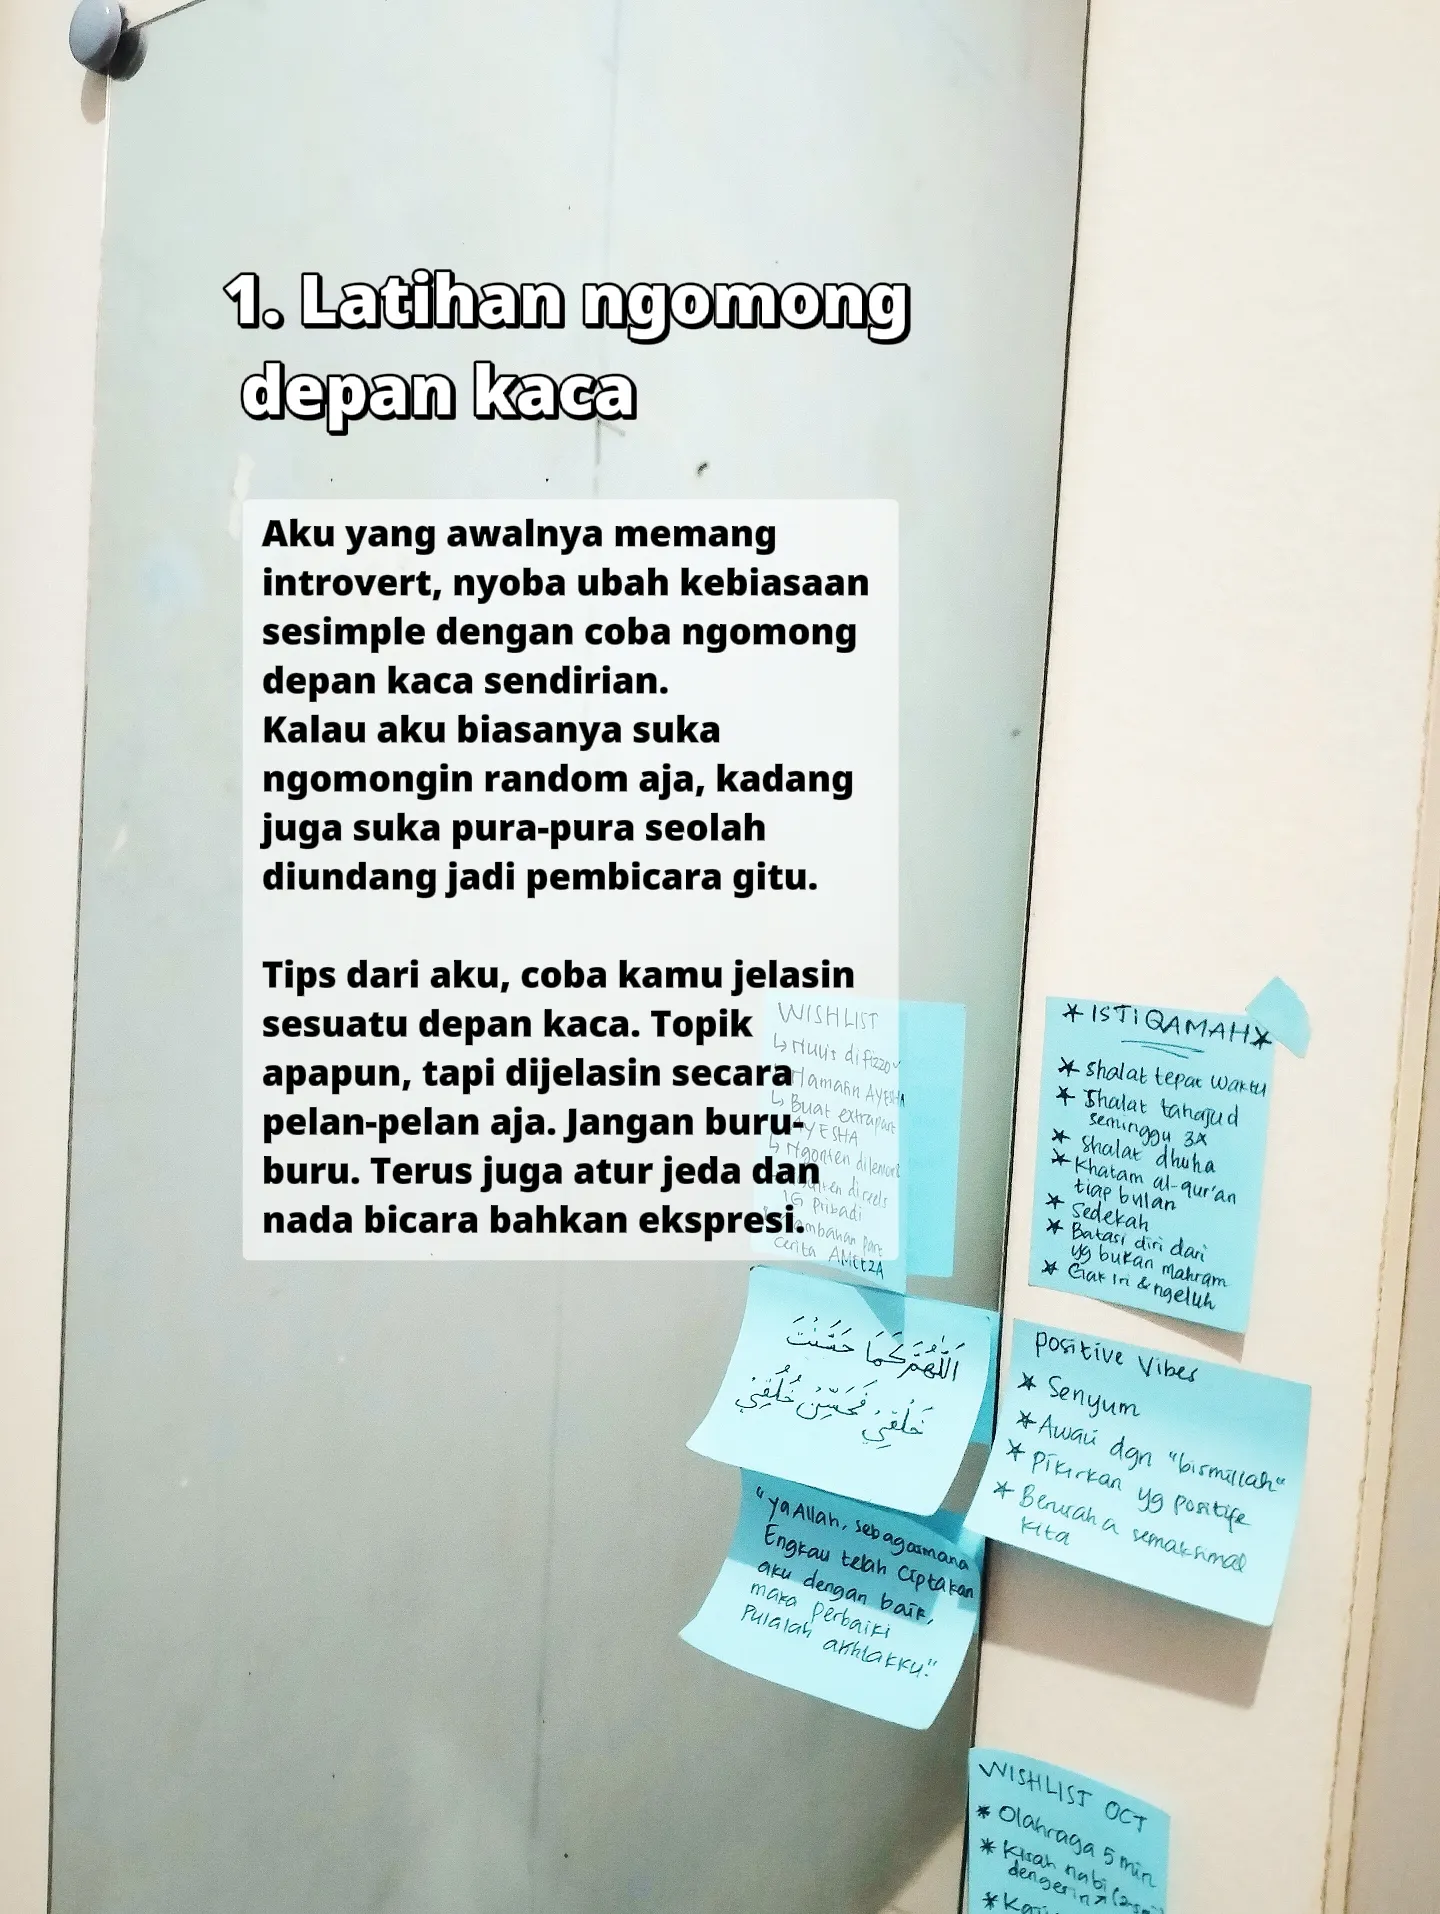 1. Latihan ngomong
depan kaca
Aku yang awalnya memang
introvert, nyoba ubah kebiasaan
sesimple dengan coba ngomong
depan kaca sendirian.
Kalau aku biasanya suka
ngomongin random aja, kadang
juga suka pura-pura seolah
diundang jadi pembicara gitu.
Tips dari aku, coba kamu jelasin
sesuatu depan kaca. Topik
apapun, tapi dijelasin secara
pelan-pelan aja. Jangan buru-
buru. Terus juga atur jeda dan
nada bicara bahkan ekspresi.
WISHLIST
↳ Nulis di fizzo
Namatin AYESHA
↳ Buat extrapart
AYESHA
↳ Ngonten dilemon8
direels
IG Pribadi
part
cerita
* ISTIQAMAH *
* Shalat tepat waktu
* Shalat tahajud
seminggu 3x
* Shalat dhuha
* Khatam al-qur'an
tiap bulan
* Sedekah
* Batasi diri dari
yg bukan mahram
* Gak iri & ngeluh
اَللّٰهُمَّ كَمَا حَسَّنْتَ
خَلْقِيْ فَحَسِّنْ خُلُقِيْ
"Ya Allah, sebagaimana
Engkau telah ciptakan
aku dengan baik,
maka perbaiki
pulalah akhlakku."
Positive Vibes
* Senyum
* Awali dgn "bismillah"
* Pikirkan yg positife
* Berusaha semaksimal
kita
WISHLIST OCT
* Olahraga 5 min
* Kisah nabi
dengerin